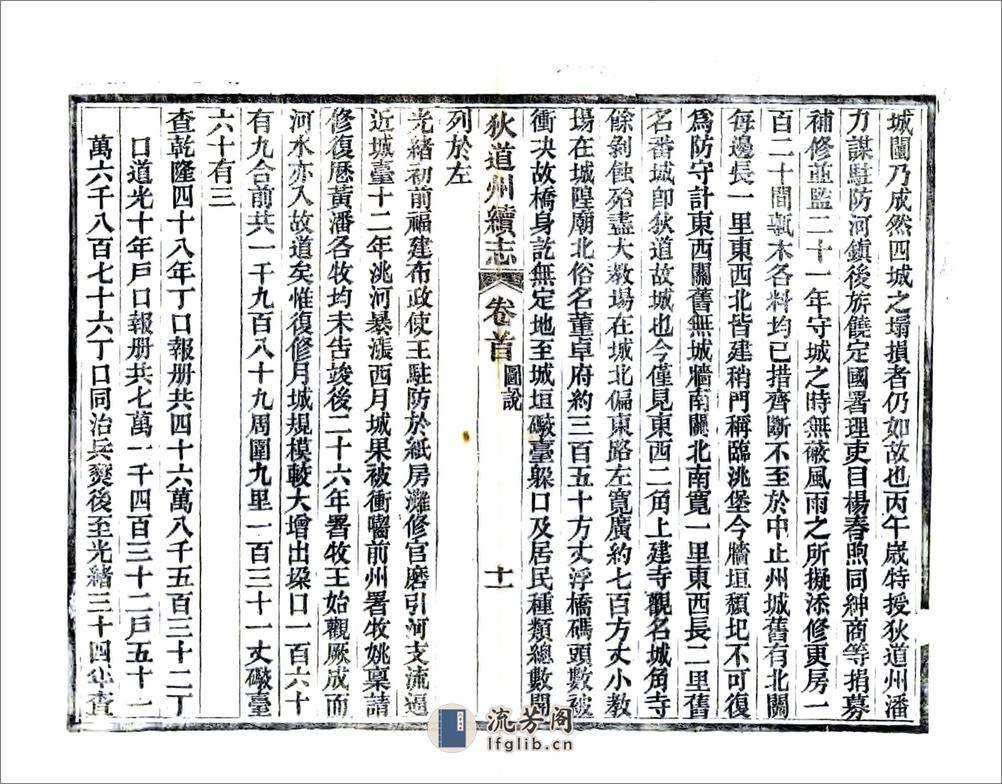 城闉乃成然四城之塌損者仍如故也丙午歲特授狄道州潘
力謀駐防河鎮後旂饒定國署理吏目楊春煦同紳商等捐募
補修並監二十一年守城之時無蔽風雨之所擬添修更房一
百二十間甎木各料均已措齊斷不至於中止州城舊有北關
每邊長一里東西北皆建稍門稱臨洮堡今牆垣頹圯不可復
為防守計東西關舊無城牆南關北南寬一里東西長二里舊
名番城卽狄道故城也今僅見東西二角上建寺觀名城角寺
餘剝蝕殆盡大教場在城北偏東路左寬廣約七百方丈小教
場在城隍廟北俗名董卓府約三百五十方丈浮橋碼頭數被
衝決故橋身訖無定地至城垣礮臺躲口及居民種類總數開
狄道州續志 卷首 圖說 十一
列於左
光緒初前福建布政使王駐防於紙房灘修官磨引河支流逼
近城臺十二年洮河暴漲西月城果被衝嚙前州署牧姚稟請
修復歷黃潘各牧均未告竣後二十六年署牧王始觀厥成而
河水亦入故道矣惟復修月城規模較大增出垛口一百六十
有九合前共一千九百八十九周圍九里一百三十一丈礮臺
六十有三
查乾隆四十八年丁口報册共四十六萬八千五百三十二丁
口道光十年戶口報册共七萬一千四百三十二戶五十一
萬六千八百七十六丁口同治兵燹後至光緒三十四年查
流芳阁
lfglib.cn